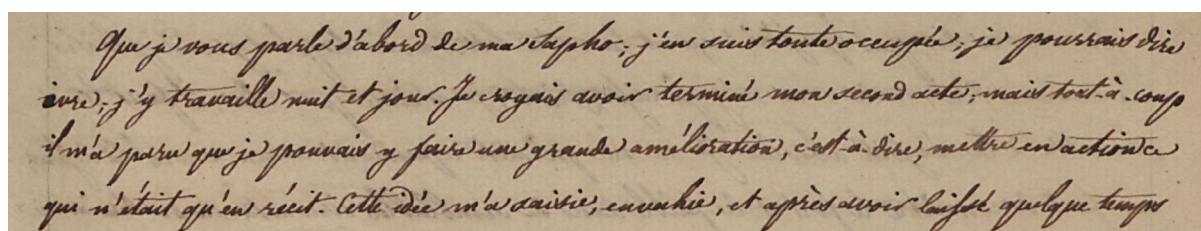 Que je vous parle d'abord de ma Sapho; j'en suis toute occupée, je pourrais dire
ivre; j'y travaille nuit et jour. Je croyais avoir terminé mon second acte; mais tout-à-coup
il m'a paru que je pouvais y faire une grande amélioration, c'est-à-dire, mettre en action ce
qui n'était qu'en récit. Cette idée m'a saisie, envahie, et après avoir laissé quelque temps